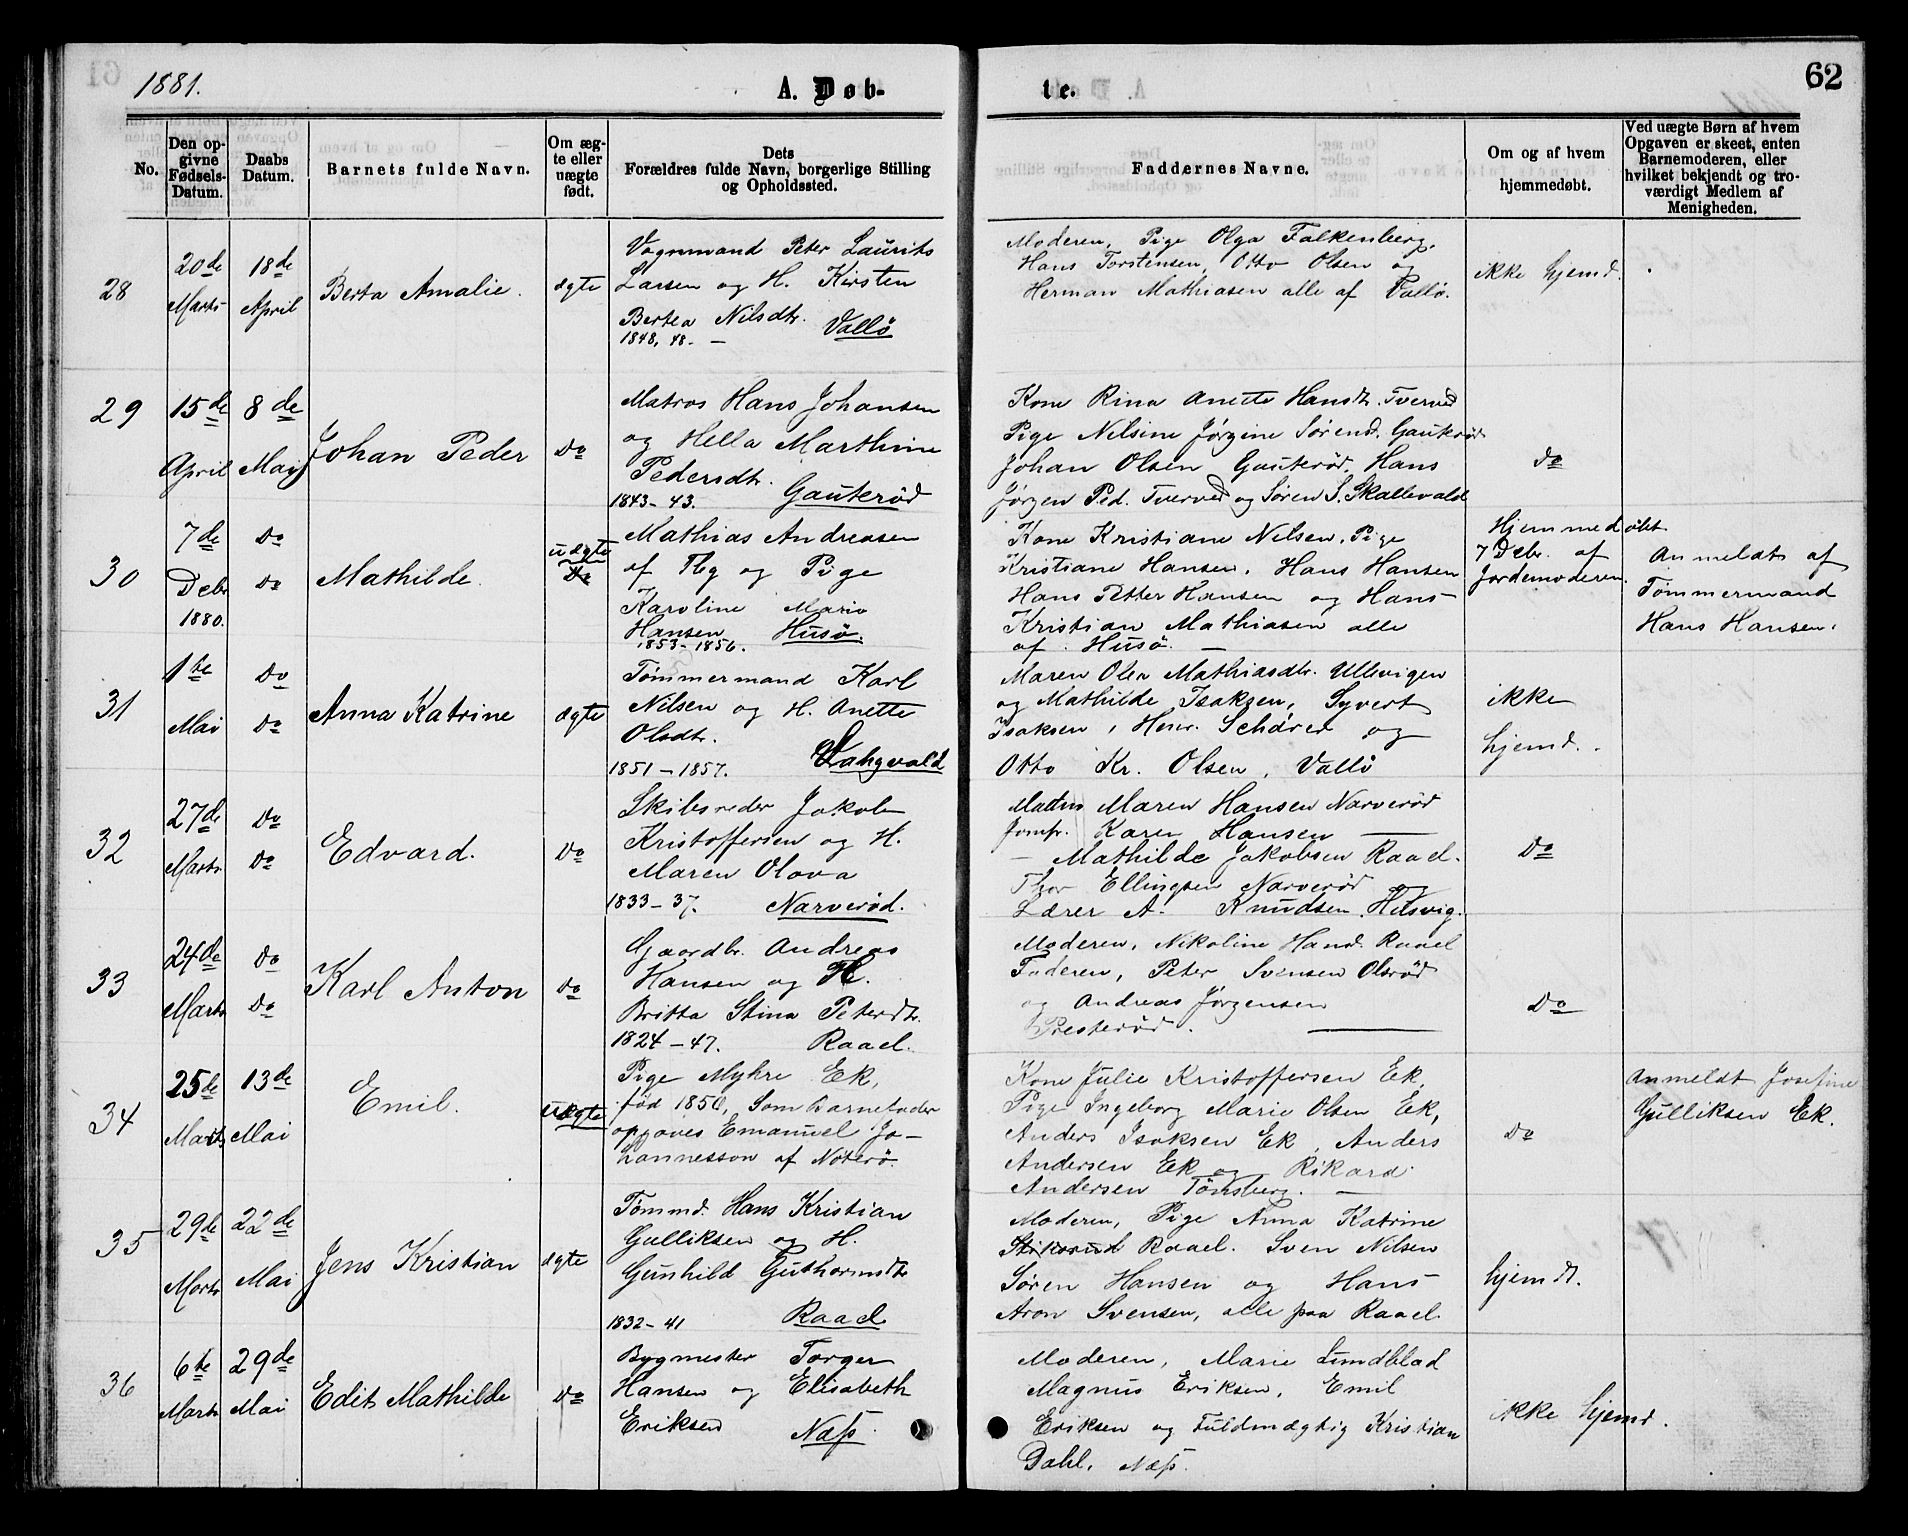 1881.
A. Døb-
te.
62
No.
Den op-
givne
Fødsels-
Datum.
Daabs
Datum.
Barnets fulde Navn.
Om æg-
te eller
uægte
født.
Dets
Forældres fulde Navn, borgerlige Stilling
og Opholdssted.
Faddernes Navne.
Om og af hvem
hjemmedøbt.
Ved uægte Børn af hvem
Opgaven er skeet, enten
Barnemoderen, eller
hvilket bekjendt og tro-
værdigt Medlem af
Menigheden.
28
20de
Marts
18de
April
Berta Amalie.
ægte
Vognmand Peter Laurits
Larsen og H. Kirsten
Bertea Nilsdtr. Vallö
1848, 48. —
Moderen, Pige Olga Falkenberg,
Hans Torstensen, Otto Olsen og
Herman Mathiasen alle af Vallö.
ikke hjemd.
29
15de
April
8de
Mai
Johan Peder
Do
Matros Hans Johansen
og Hella Marthine
Pedersdtr.
1843-43. Gauterød
Kone Rina Anette Hansdtr. Tverved
Pige Nilsine Jørgine Sørend. Gauterød
Johan Olsen Gauterød, Hans
Jørgen Ped. Tverved og Søren S. Skallevald
Do
30
7de
Debr
1880.
Do
Do
Mathilde.
uægte
Do
Mathias Andreasen
af Tbg og Pige
Karoline Marie
Hansen Husö.
1853-1856.
Kone Kristiane Nilsen, Pige
Kristiane Hansen, Hans Hansen
Hans Petter Hansen og Hans
Kristian Mathiasen alle
af Husö. —
Hjemmedøbt
7 Debr. af
Jordemoderen.
Anmeldt af
Tømmermand
Hans Hansen.
31
1te
Mai
Do
Do
Anna Katrine
ægte
Tømmermand Karl
Nilsen og H. Anette
Olsdtr.
1851-1857.
Maren Olea Mathiasdtr. Ullevigen
og Mathilde Isaksen, Syvert
Isaksen, Henr. Schører og
Otto Kr. Olsen, Vallö
ikke
hjemd.
32
27de
Marts
Do
Do
Edvard.
Do
Skibsreder Jakob
Kristoffersen og H.
Maren Olava
1833-37. Narverød.
Maren Hansen Narverød
Jomfr. Karen Hansen —
— Mathilde Jakobsen Raael.
Thor Ellingsen Narverød
Lærer A. Knudsen,
Do
33
24de
Marts
Do
Do
Karl Anton
Do
Gaardbr. Andreas
Hansen og H.
Britta Stina Petersdtr.
1824-47. Raael.
Moderen, Nikoline Hansd. Raael
Faderen, Peter Svensen Olsrød
og Andreas Jørgensen
Presterød. —
Do
34
25de
Marts
13de
Mai
Emil.
uægte
Pige Myhre Ek,
født 1850, Som Barnefader
opgaves Emanuel Jo-
hannesson af Nøterö.
Kone Julie Kristoffersen Ek,
Pige Ingeborg Marie Olsen Ek,
Anders Isaksen Ek, Anders
Andersen Ek og Rikard
Andersen Tönsberg. —
Do
Anmeldt Josefine
Gulliksen Ek.
35
29de
Marts
22de
Mai
Jens Kristian
ægte
Tømmd. Hans Kristian
Gulliksen og H.
Gunhild Guthormsdtr
1832-41 Raael
Moderen, Pige Anna Katrine
Raael. Sven Nilsen
Søren Hansen og Hans
Aron Svensen, alle paa Raael.
hjemdt.
36
6te
Marts
29de
Mai
Edit Mathilde
Do
Bygmester Torger
Hansen og Elisabeth
Eriksen Næss.
Moderen, Marie Lundblad
Magnus Eriksen, Emil
Eriksen og Fuldmægtig Kristian
Dahl, Næss.
ikke hjemd.